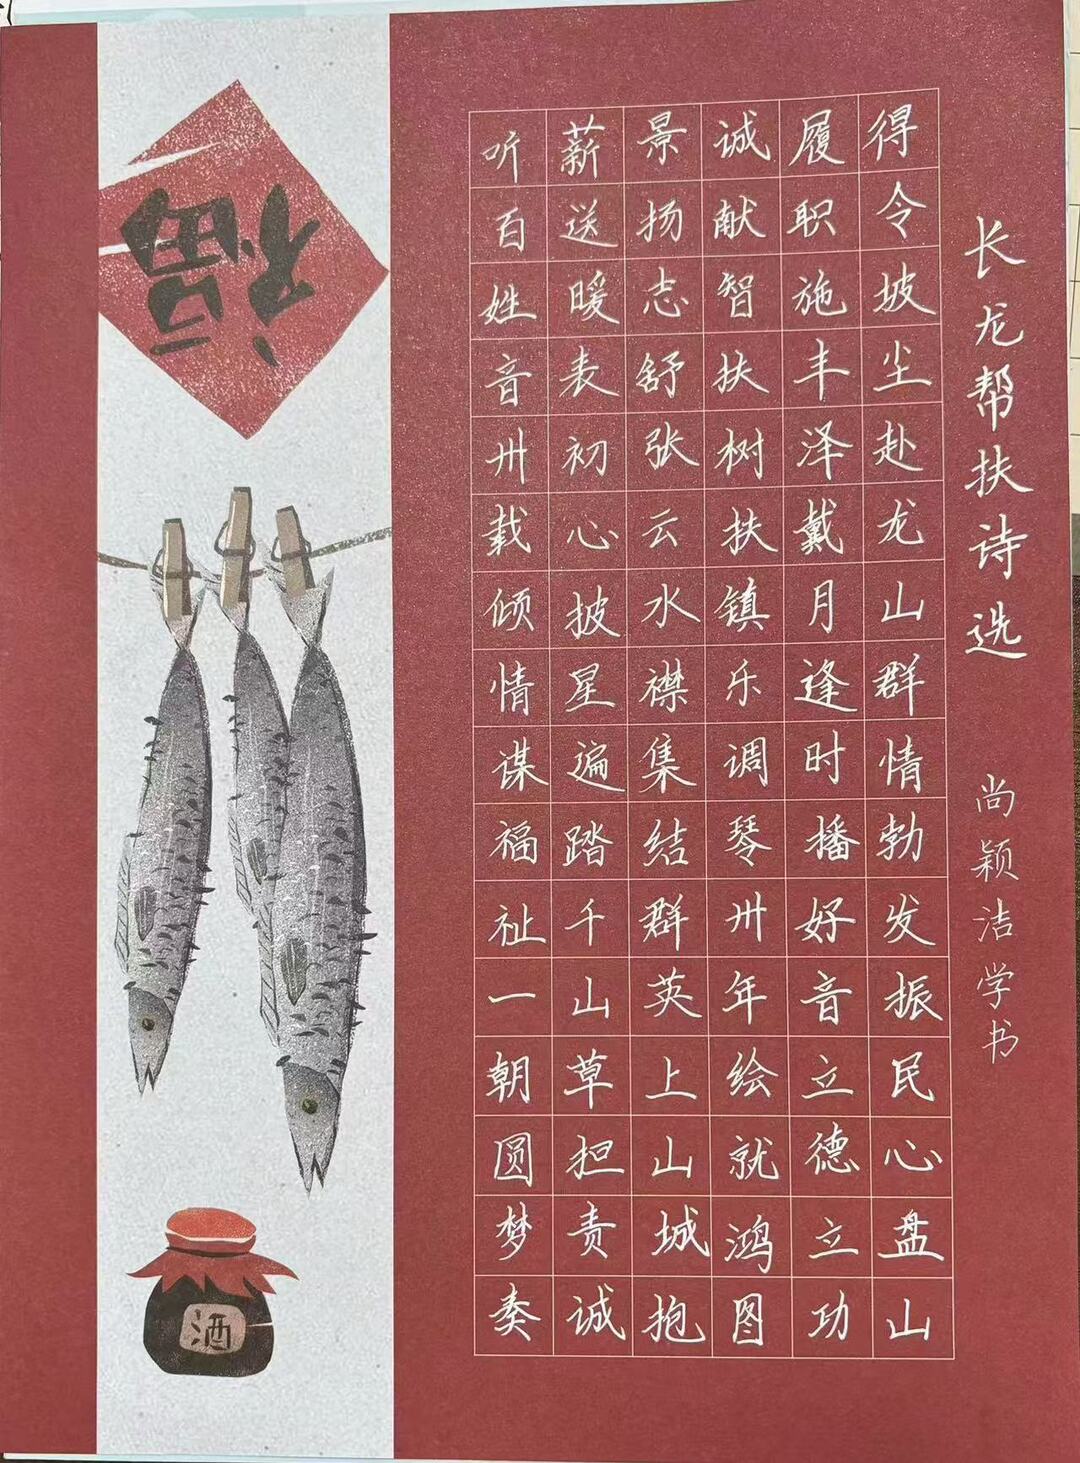 长龙帮扶诗选 尚颖洁学书
得令坡尘赴龙山群情勃发振民心盘山
履职施丰泽戴月逢时播好音立德立功
诚献智扶树扶镇乐调琴卅年绘就鸿图
景扬志舒张云水襟集结群英上山城抱
薪送暖表初心披星遍踏千山草担责诚
听百姓音卅载倾情谋福祉一朝圆梦奏
福
酒